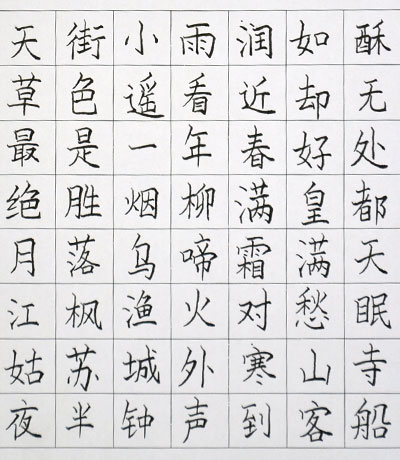 天街小雨润如酥
草色遥看近却无
最是一年春好处
绝胜烟柳满皇都
月落乌啼霜满天
江枫渔火对愁眠
姑苏城外寒山寺
夜半钟声到客船